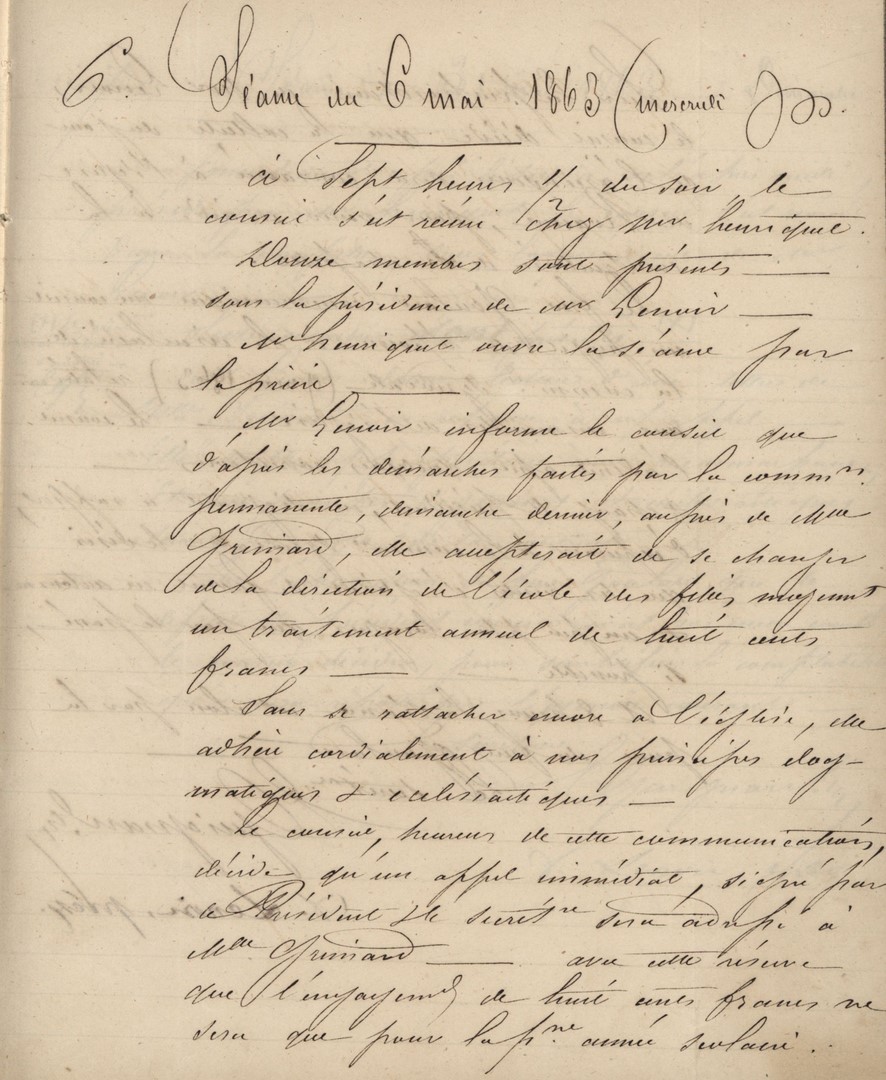 6. Séance du 6 mai 1863 (mercredi)
à Sept heures 1/2 du soir, le
conseil s'est réuni chez Mr henriquet.
Douze membres sont présents —
sous la présidence de Mr Lenoir —
Mr henriquet ouvre la séance par
la prière —
Mr Lenoir informe le conseil que
d'après les démarches faites par la common.
permanente, dimanche dernier, auprès de Mme
Grimard, elle accepterait de se charger
de la direction de l'école des filles moyennt
un traitement annuel de huit cents
francs —
Sans se rattacher encore à l'église, elle
adhère cordialement à nos principes dog-
matiques & ecclésiastiques —
Le conseil, heureux de cette communication,
décide qu'un appel immédiat, signé par
le Président & le secrétre sera adressé à
Mme Grimard — avec cette réserve
que l'engagemt de huit cents francs ne
sera que pour la pre année scolaire.